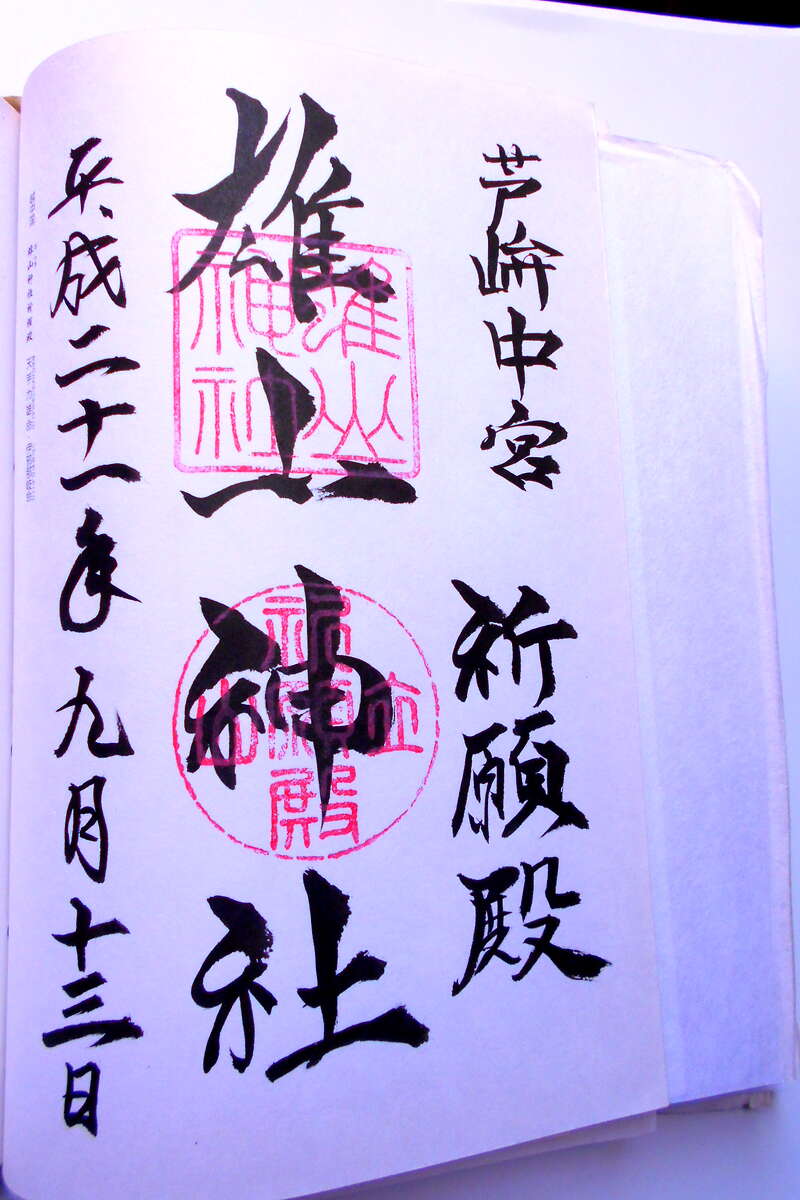 芦峅中宮 祈願殿
雄山神社
雄山神社
立山
祈願殿
平成二十一年九月十三日